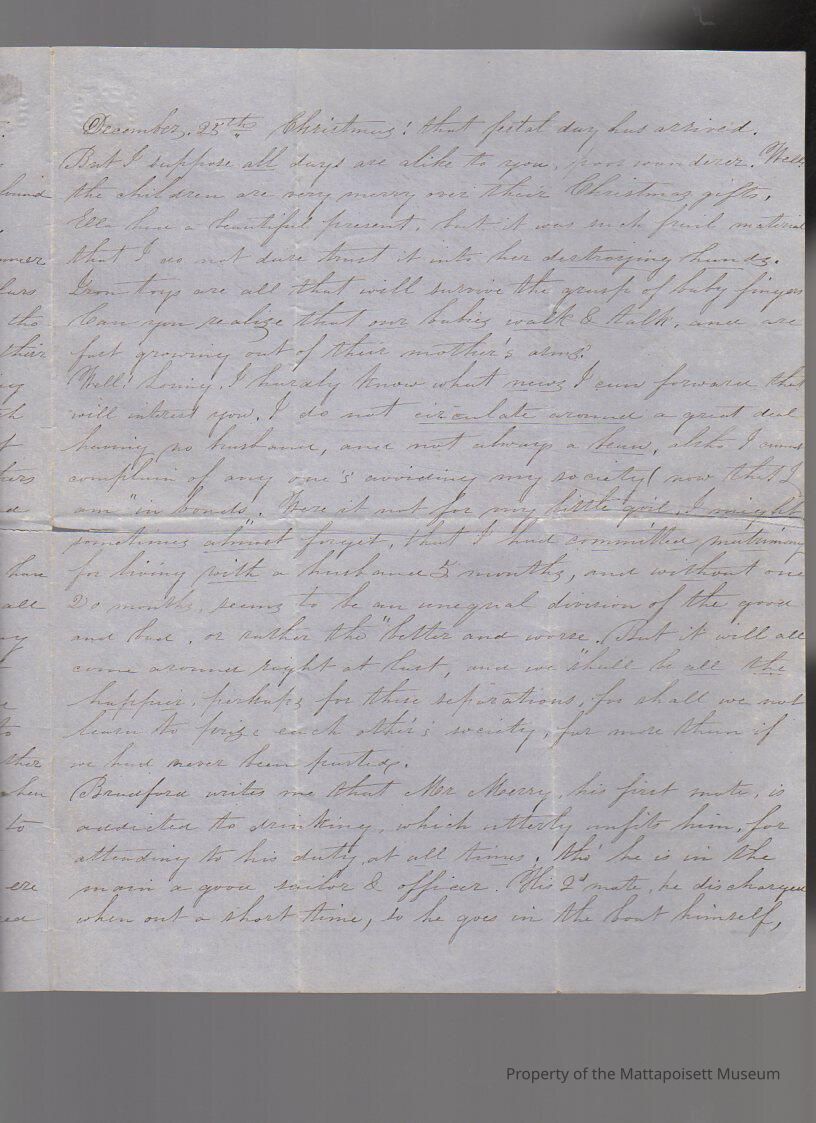 December. 25th Christmas! that festal day has arrived.
But I suppose all days are alike to you, poor wanderer. Well!
the children are very merry over their Christmas gifts,
Ella has a beautiful present, but it was such frail material
that I do not dare trust it into her destroying hands.
Iron toys are all that will survive the grasp of baby fingers
Can you realize that our babies walk & talk, and are
fast growing out of their mother's arms?
Well! I hardly know what news I can forward that
will interest you. I do not circulate around a great deal
having no husband, and not always a beau, altho I cannot
complain of any one's avoiding my society (now that I
am "in bonds. Were it not for my little girl, I might
sometimes almost forget, that I had committed matrimony
for living with a husband 5 months, and without one
20 months, seems to be an unequal division of the good
and bad, or rather the "better and worse. But it will all
come around right at last, and we shall be all the
happier, perhaps for these separations, for shall we not
learn to prize each other's society, far more than if
we had never been parted.
Bradford writes me that Mr Merry, his first mate, is
addicted to drinking, which utterly unfits him, for
attending to his duty at all times, tho' he is in the
main a good sailor & officer. His 2d mate, he discharged
when out a short time, so he goes in the boat himself,
Property of the Mattapoisett Museum